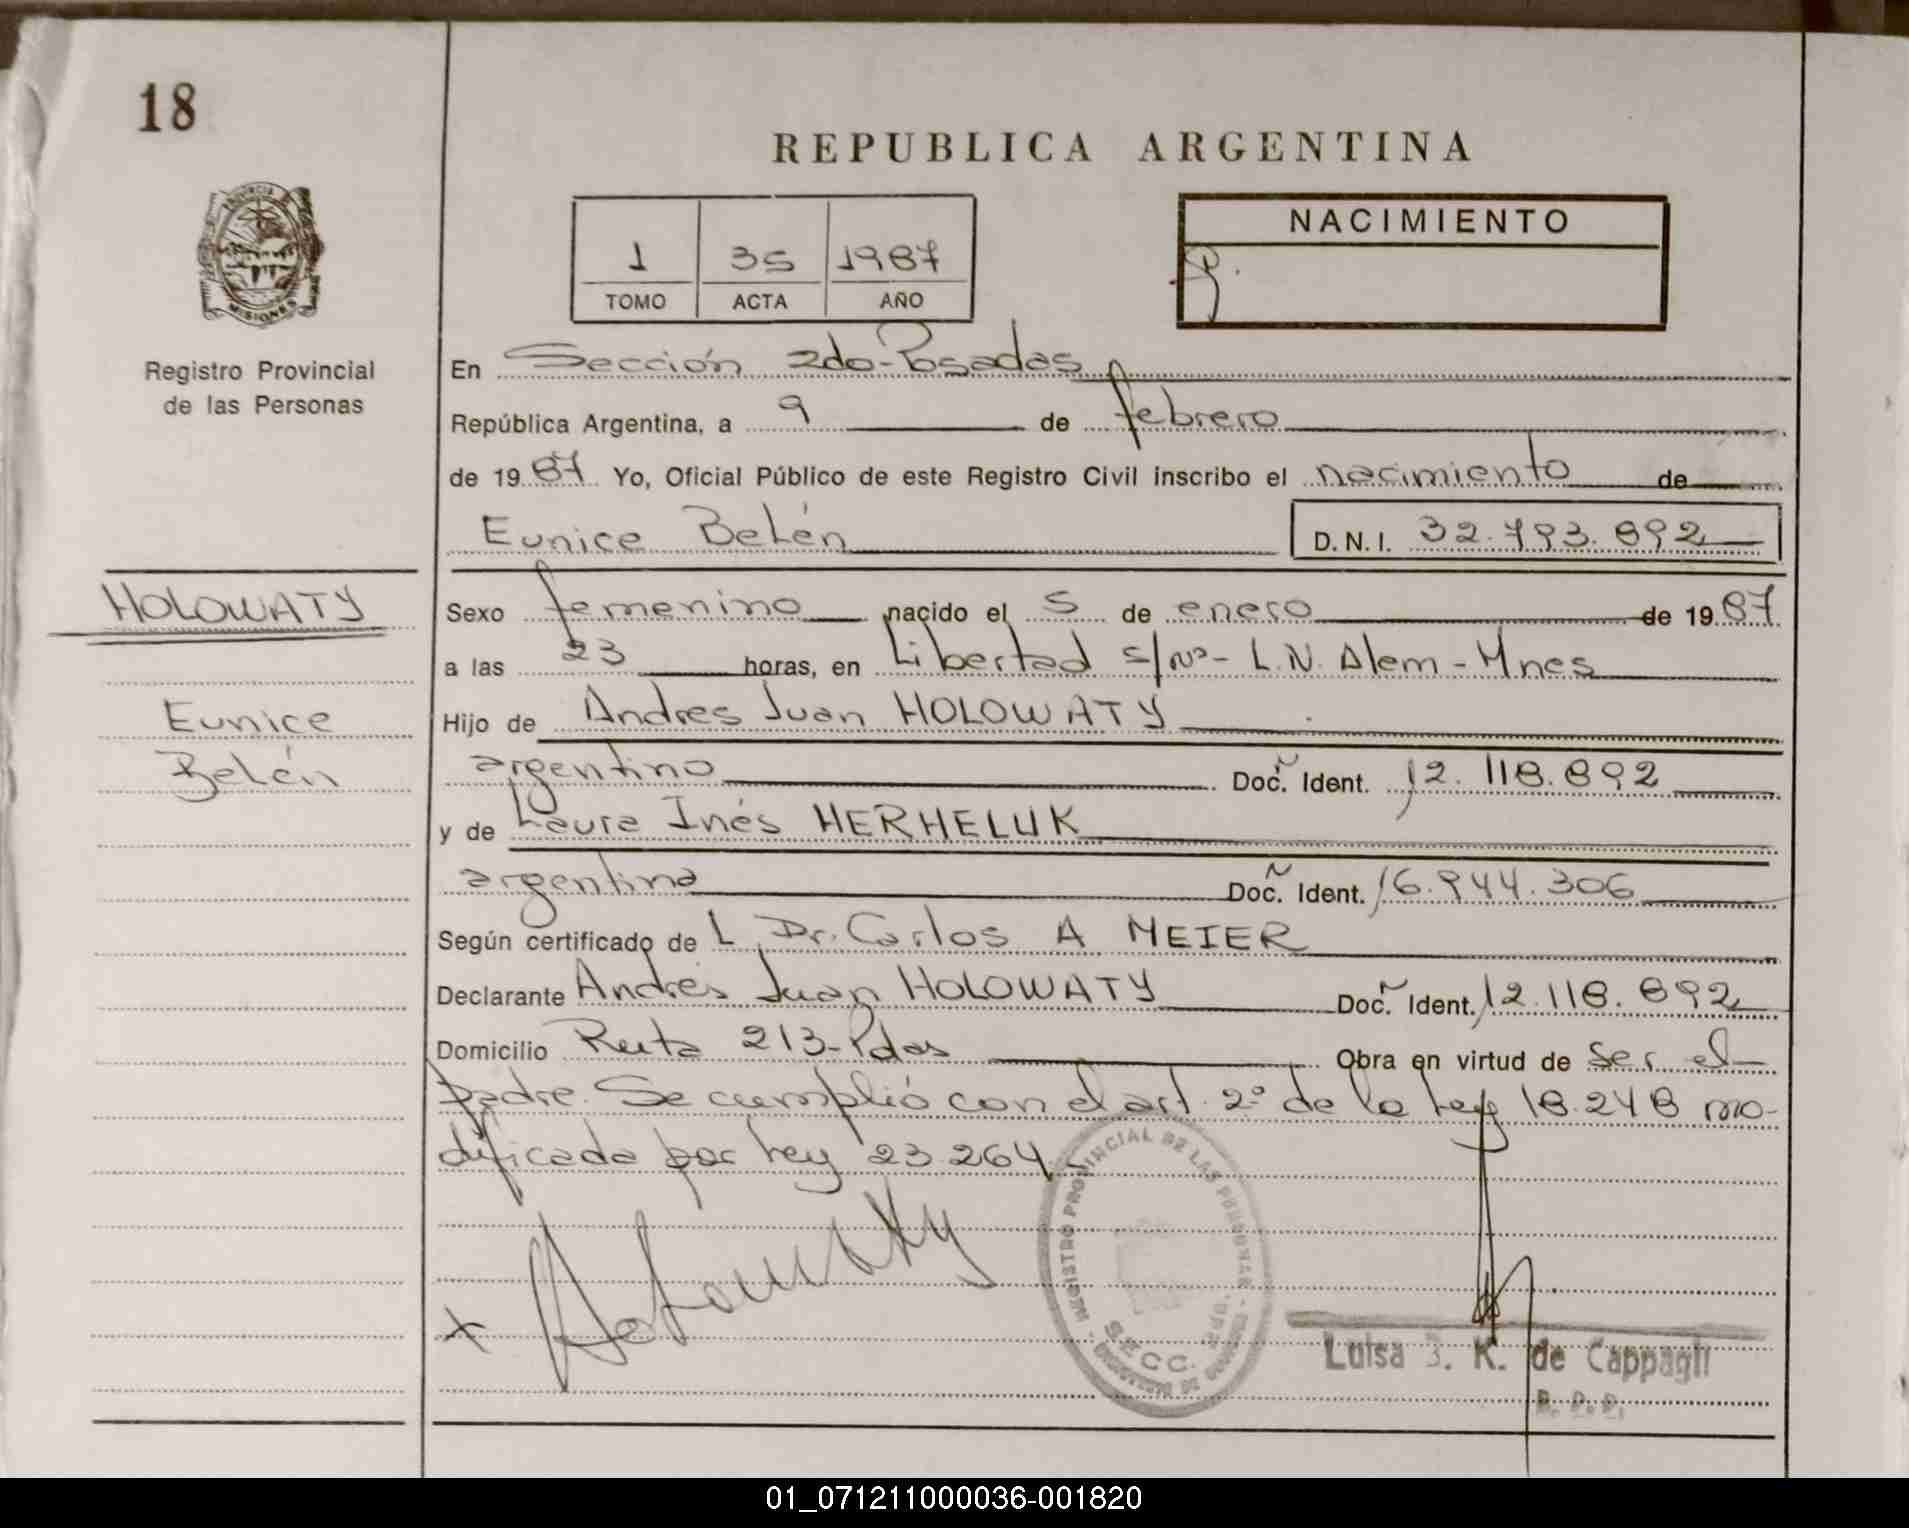 18
REPUBLICA ARGENTINA
PROVINCIA
MISIONES
1 35 1987
TOMO ACTA AÑO
NACIMIENTO
Registro Provincial
de las Personas
En Sección 2do-Posadas
República Argentina, a 9 de febrero
de 1987 Yo, Oficial Público de este Registro Civil inscribo el nacimiento de
Eunice Belén D.N.I. 32.793.892
HOLOWATY
Eunice
Belén
Sexo femenino nacido el 5 de enero de 1987
a las 23 horas, en Libertad s/Nº- L.N. Alem - Mnes
Hijo de Andres Juan HOLOWATY
argentino Doc. Ident. 12.118.892
y de Laura Inés HERHELUK
argentina Doc. Ident. 16.944.306
Según certificado de L Dr. Carlos A MEIER
Declarante Andrés Juan HOLOWATY Doc. Ident. 12.118.892
Domicilio Ruta 213-Pdas Obra en virtud de ser el
padre. Se cumplió con el art. 2º de la Ley 18.248 mo-
dificada por Ley 23264
Holowaty
REGISTRO PROVINCIAL DE LAS PERSONAS
SECC.
Luisa K. de Cappagli
01_071211000036-001820